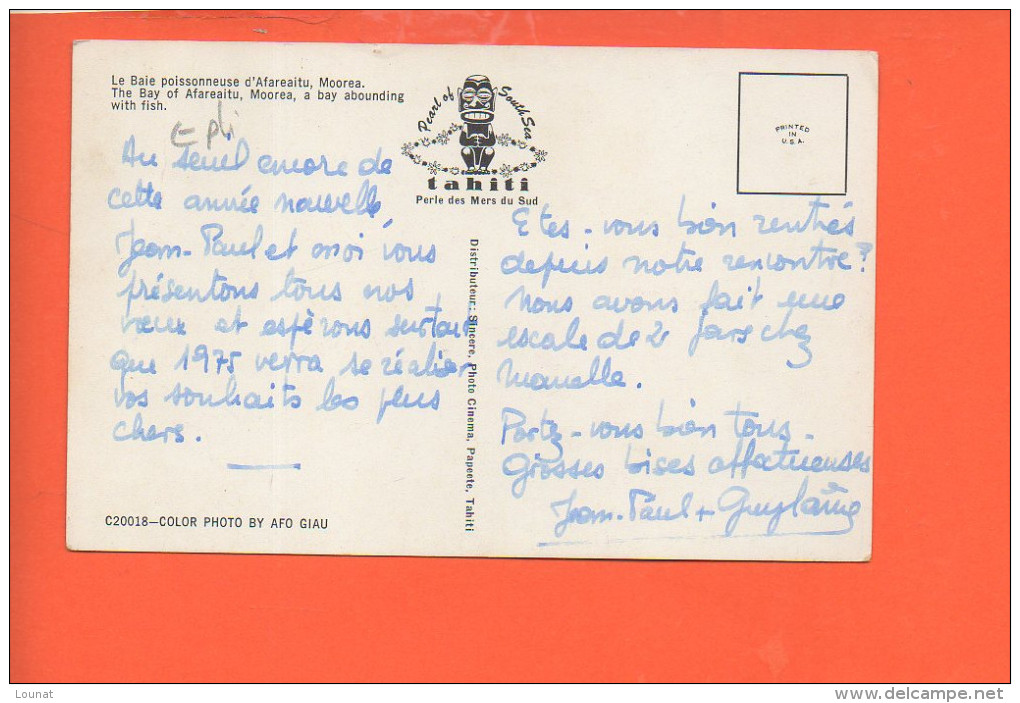 Le Baie poissonneuse d'Afareaitu, Moorea.
The Bay of Afareaitu, Moorea, a bay abounding
with fish.
Pearl of South Sea
tahiti
Perle des Mers du Sud
PRINTED
IN
U.S.A.
pli
Au seuil encore de
cette année nouvelle,
Jean-Paul et moi vous
présentons tous nos
vœux et espérons surtout
que 1975 verra se réaliser
vos souhaits les plus
chers.
C20018—COLOR PHOTO BY AFO GIAU
Distributeur: Sincere, Photo Cinema, Papeete, Tahiti
Etes-vous bien rentrés
depuis notre rencontre?
Nous avons fait une
escale de 2 jours chez
Manelle.
Portez-vous bien tous.
Grosses bises affectueuses
Jean-Paul + Guylaine
Lounat
www.delcampe.net